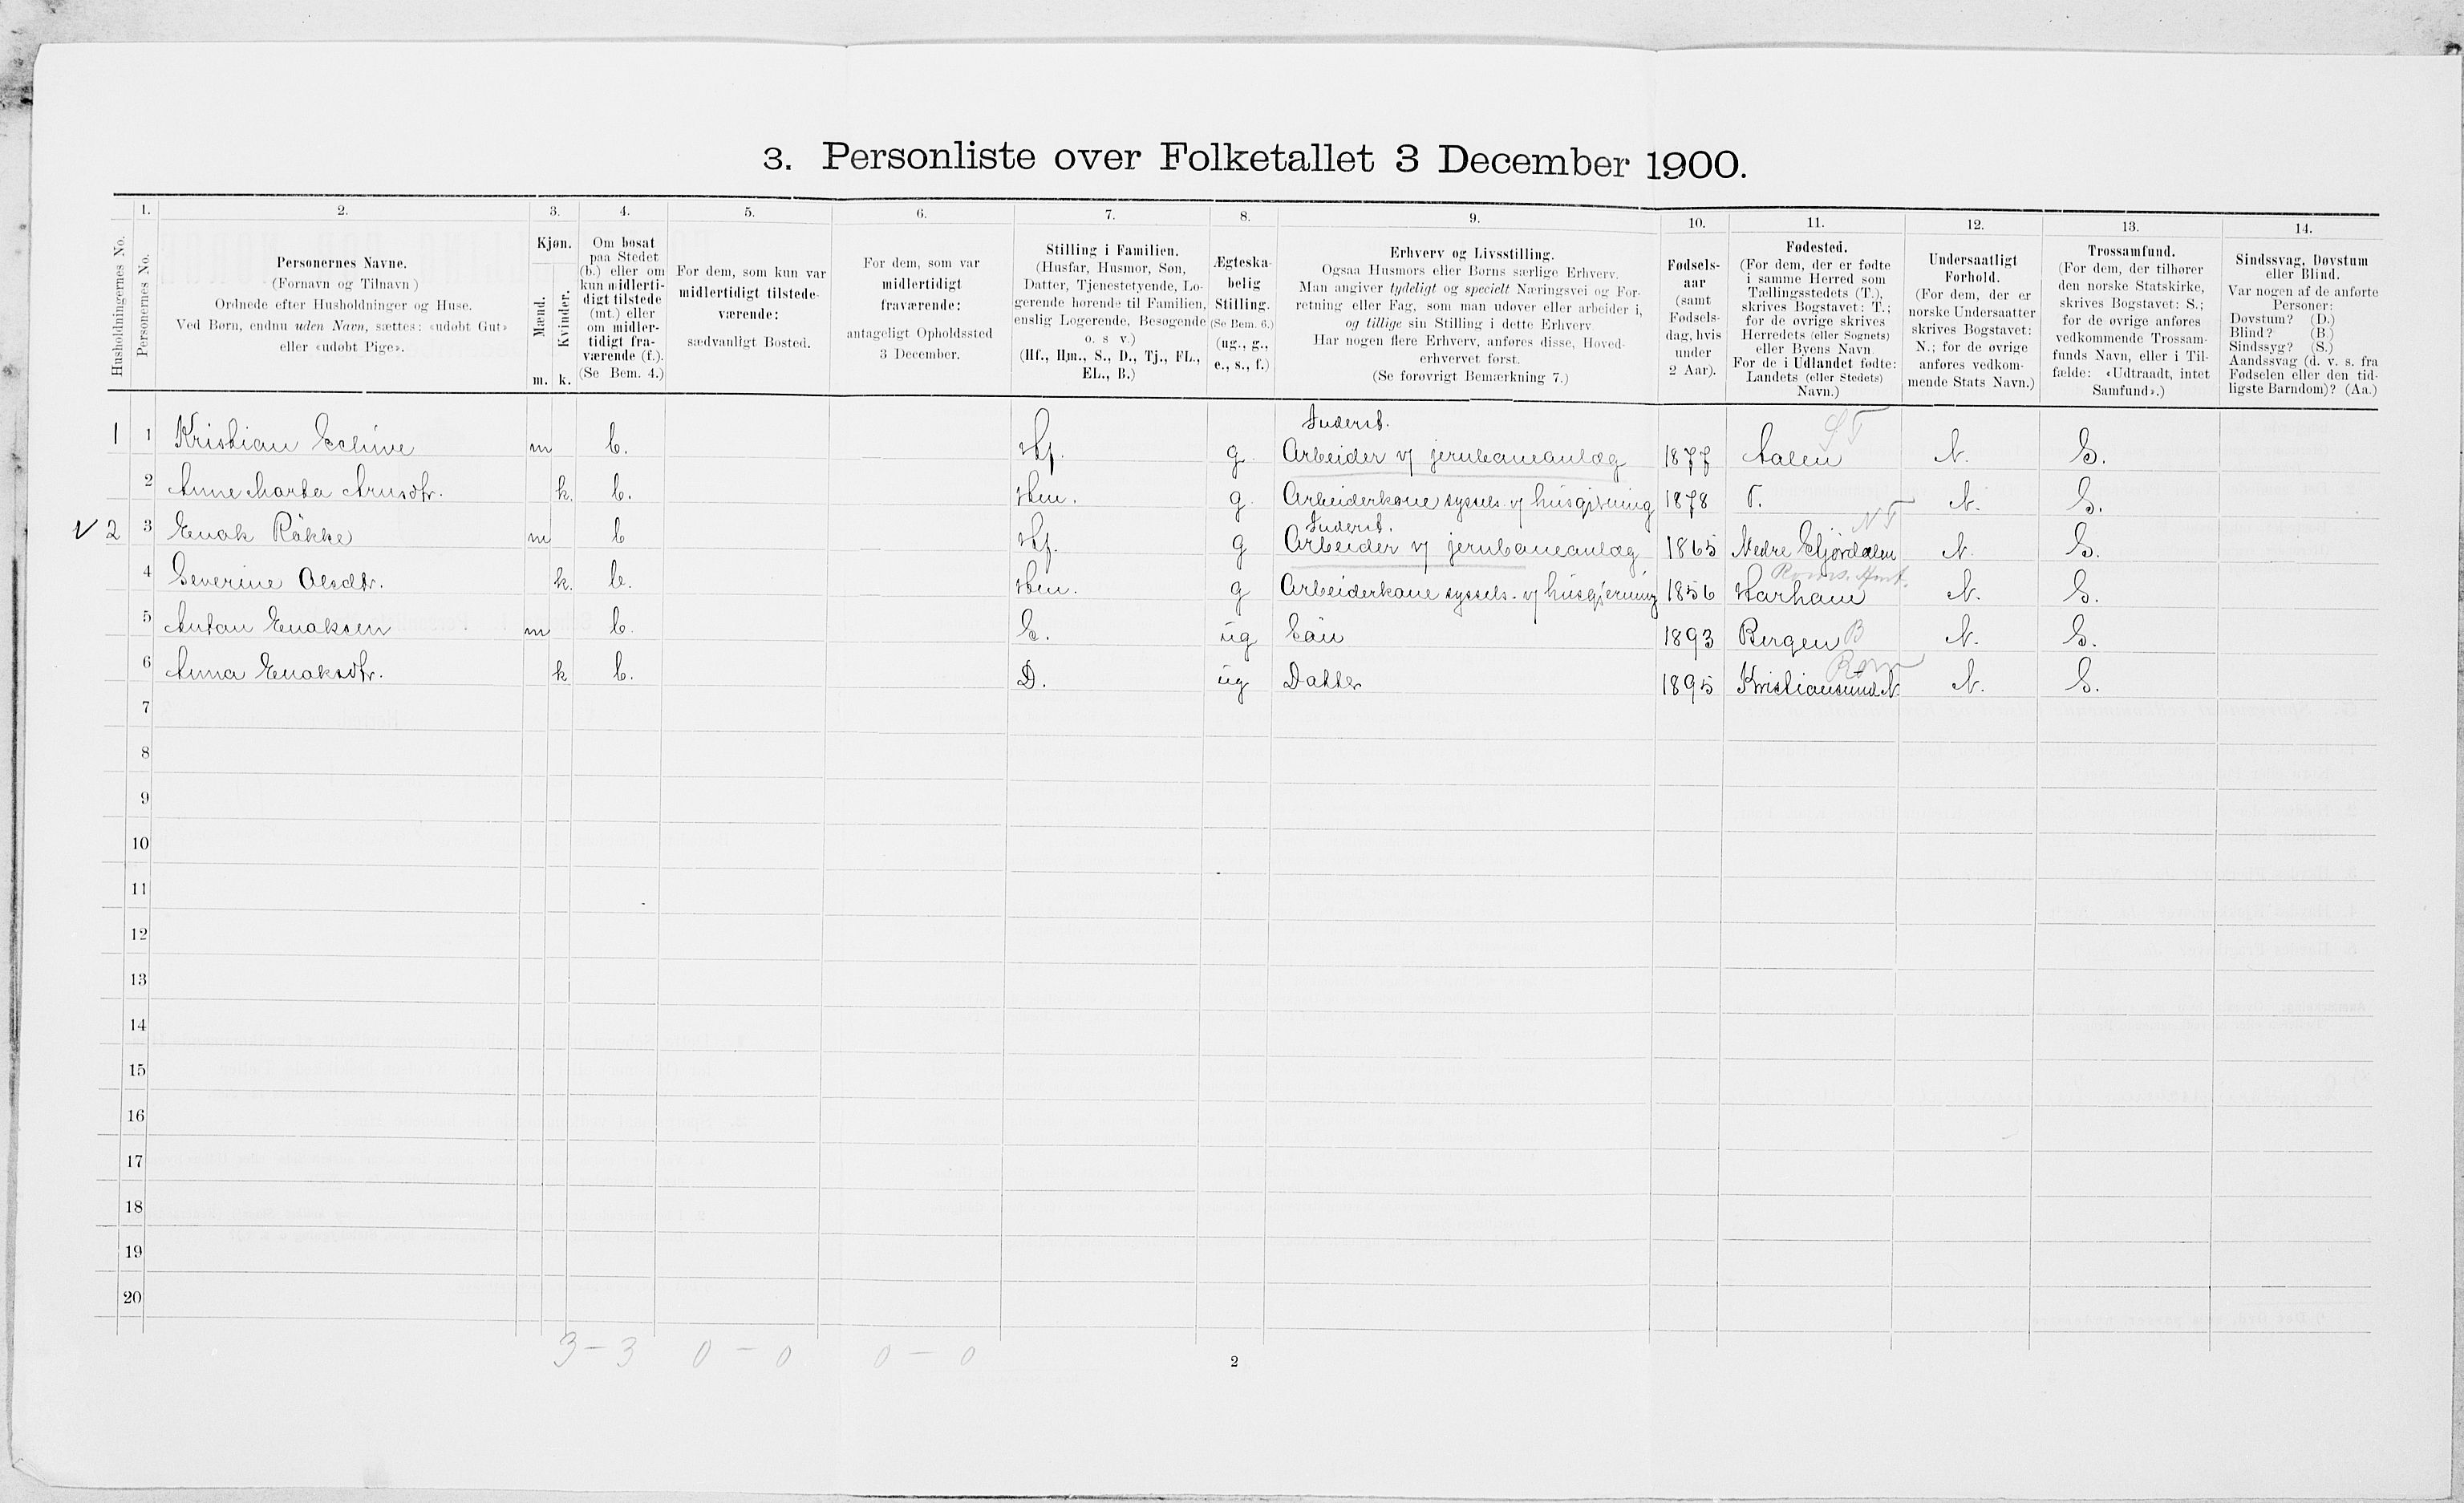 3. Personliste over Folketallet 3 December 1900.
1. 2. 3. 4. 5. 6. 7. 8. 9. 10. 11. 12. 13. 14.
Husholdningernes No.
Personernes No.
Personernes Navne.
(Fornavn og Tilnavn)
Ordnede efter Husholdninger og Huse.
Ved Børn, endnu uden Navn, sættes: «udøbt Gut»
eller «udøbt Pige».
Kjøn.
Mænd.
Kvinder.
m. k.
Om bosat
paa Stedet
(b.) eller om
kun midlerti-
digt tilstede
(mt.) eller
om midler-
tidigt fra-
værende (f.).
(Se Bem. 4.)
For dem, som kun var
midlertidigt tilstede-
værende:
sædvanligt Bosted.
For dem, som var
midlertidigt
fraværende:
antageligt Opholdssted
3 December.
Stilling i Familien.
(Husfar, Husmor, Søn,
Datter, Tjenestetyende, Lo-
gerende hørende til Familien,
enslig Logerende, Besøgende
o. s v.)
(Hf., Hm., S., D., Tj., FL.,
EL., B.)
Ægteska-
belig
Stilling.
(Se Bem. 6.)
(ug., g.,
e., s., f.)
Erhverv og Livsstilling.
Ogsaa Husmors eller Børns særlige Erhverv.
Man angiver tydeligt og specielt Næringsvei og For-
retning eller Fag, som man udøver eller arbeider i,
og tillige sin Stilling i dette Erhverv.
Har nogen flere Erhverv, anføres disse, Hoved-
erhvervet først.
(Se forøvrigt Bemærkning 7.)
Fødsels-
aar
(samt
Fødsels-
dag, hvis
under
2 Aar).
Fødested.
(For dem, der er fødte
i samme Herred som
Tællingsstedets (T.),
skrives Bogstavet: T.;
for de øvrige skrives
Herredets (eller Sognets)
eller Byens Navn.
For de i Udlandet fødte:
Landets (eller Stedets)
Navn.)
Undersaatligt
Forhold.
(For dem, der er
norske Undersaatter
skrives Bogstavet:
N.; for de øvrige
anføres vedkom-
mende Stats Navn.)
Trossamfund.
(For dem, der tilhører
den norske Statskirke,
skrives Bogstavet: S.;
for de øvrige anføres
vedkommende Trossam-
funds Navn, eller i Til-
fælde: «Udtraadt, intet
Samfund».)
Sindssvag, Døvstum
eller Blind.
Var nogen af de anførte
Personer:
Døvstum? (D.)
Blind? (B.)
Sindssyg? (S.)
Aandssvag (d. v. s. fra
Fødselen eller den tid-
ligste Barndom)? (Aa.)
Inderst. S T
1 1 Kristian m b. Hf. g. Arbeider v/ jernbaneanlæg 1877 Aalen N. S.
2 Anne Marta Arnsdtr. k. b. Hm. g. Arbeiderkone syssels. v/ husgjerning 1878 T. N. S.
Inderst. N T
2 3 Enok Rökke m b Hf. g Arbeider v/ jernbaneanlæg 1865 Nedre Stjørdalen N. S.
Roms. Amt.
4 Severine Olsdtr. k. b. Hm. g Arbeiderkone syssels. v/ husgjerning 1856 Harham N. S.
5 Antan Enoksen m b. S. ug Sön 1893 Bergen B N. S.
Rom
6 Anna Enoksdtr. k b. D. ug Datter 1895 Kristiansund N. N. S.
7
8
9
10
11
12
13
14
15
16
17
18
19
20
3 - 3 0 - 0 0 - 0
2